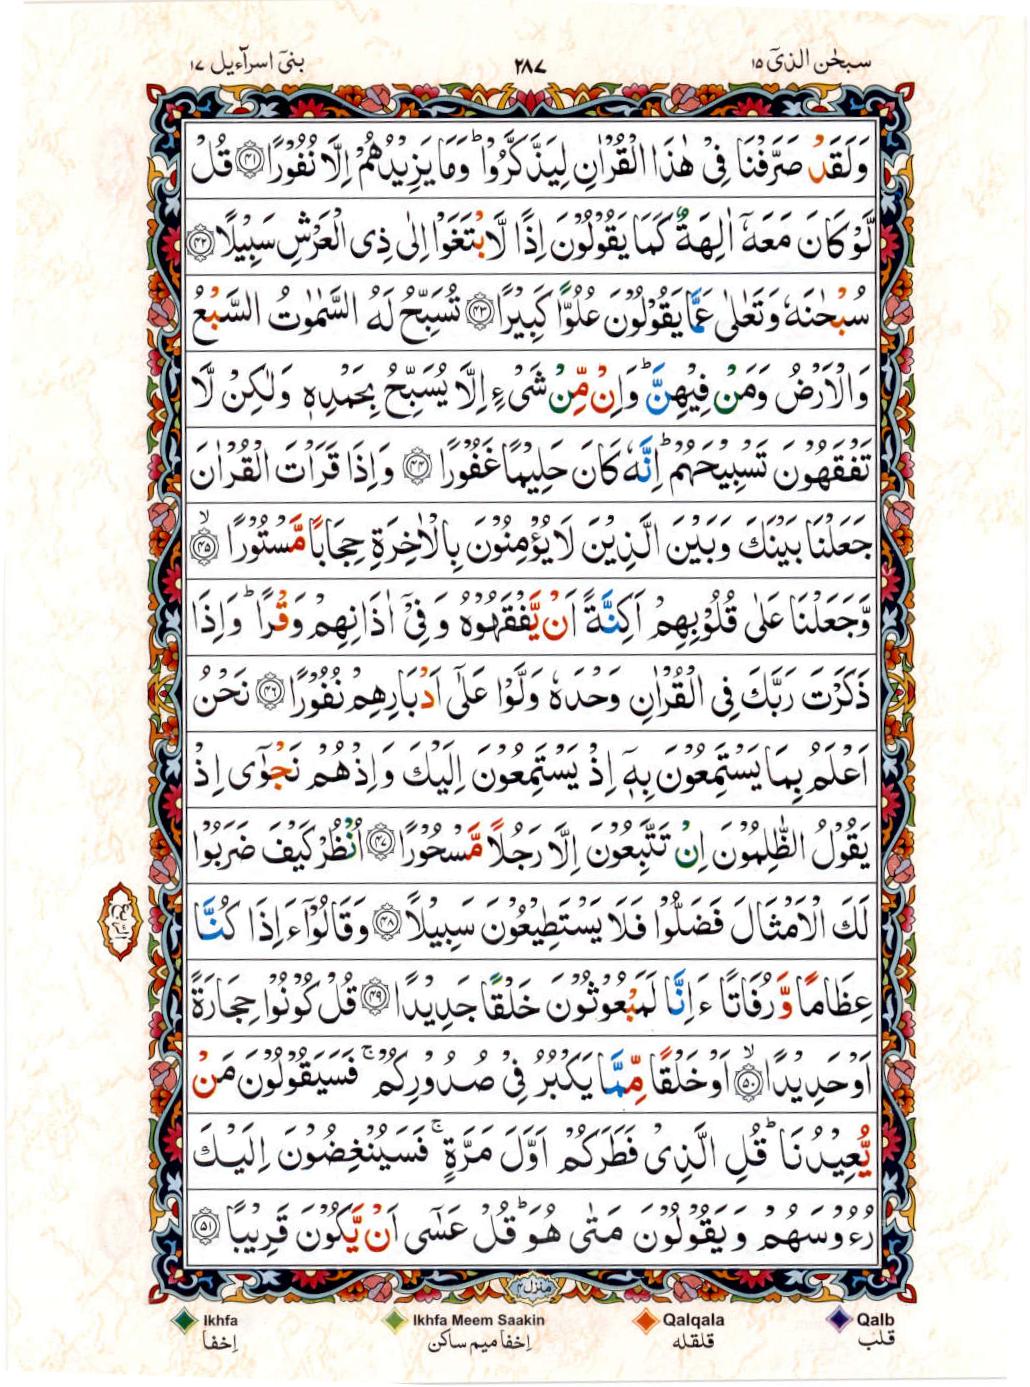 سبحٰن الذیٓ ١٥
٢٨٧
بنیٓ اسرآءیل ١٧
وَلَقَدْ صَرَّفْنَا فِیْ هٰذَا الْقُرْاٰنِ لِیَذَّكَّرُوْا ؕ وَمَا یَزِیْدُهُمْ اِلَّا نُفُوْرًا ﴿۴۱﴾ قُلْ
لَّوْ كَانَ مَعَهٗۤ اٰلِهَةٌ كَمَا یَقُوْلُوْنَ اِذًا لَّابْتَغَوْا اِلٰی ذِی الْعَرْشِ سَبِیْلًا ﴿۴۲﴾
سُبْحٰنَهٗ وَتَعٰلٰی عَمَّا یَقُوْلُوْنَ عُلُوًّا كَبِیْرًا ﴿۴۳﴾ تُسَبِّحُ لَهُ السَّمٰوٰتُ السَّبْعُ
وَالْاَرْضُ وَمَنْ فِیْهِنَّ ؕ وَاِنْ مِّنْ شَیْءٍ اِلَّا یُسَبِّحُ بِحَمْدِهٖ وَلٰكِنْ لَّا
تَفْقَهُوْنَ تَسْبِیْحَهُمْ ؕ اِنَّهٗ كَانَ حَلِیْمًا غَفُوْرًا ﴿۴۴﴾ وَاِذَا قَرَاْتَ الْقُرْاٰنَ
جَعَلْنَا بَیْنَكَ وَبَیْنَ الَّذِیْنَ لَا یُؤْمِنُوْنَ بِالْاٰخِرَةِ حِجَابًا مَّسْتُوْرًا ﴿۴۵﴾ ۙ
وَّجَعَلْنَا عَلٰی قُلُوْبِهِمْ اَكِنَّةً اَنْ یَّفْقَهُوْهُ وَفِیْۤ اٰذَانِهِمْ وَقْرًا ؕ وَاِذَا
ذَكَرْتَ رَبَّكَ فِی الْقُرْاٰنِ وَحْدَهٗ وَلَّوْا عَلٰۤی اَدْبَارِهِمْ نُفُوْرًا ﴿۴۶﴾ نَحْنُ
اَعْلَمُ بِمَا یَسْتَمِعُوْنَ بِهٖۤ اِذْ یَسْتَمِعُوْنَ اِلَیْكَ وَاِذْ هُمْ نَجْوٰۤی اِذْ
یَقُوْلُ الظّٰلِمُوْنَ اِنْ تَتَّبِعُوْنَ اِلَّا رَجُلًا مَّسْحُوْرًا ﴿۴۷﴾ اُنْظُرْ كَیْفَ ضَرَبُوْا
لَكَ الْاَمْثَالَ فَضَلُّوْا فَلَا یَسْتَطِیْعُوْنَ سَبِیْلًا ﴿۴۸﴾ وَقَالُوْۤا ءَاِذَا كُنَّا
عِظَامًا وَّرُفَاتًا ءَاِنَّا لَمَبْعُوْثُوْنَ خَلْقًا جَدِیْدًا ﴿۴۹﴾ قُلْ كُوْنُوْا حِجَارَةً
اَوْ حَدِیْدًا ﴿۵۰﴾ ۙ اَوْ خَلْقًا مِّمَّا یَكْبُرُ فِیْ صُدُوْرِكُمْ ۚ فَسَیَقُوْلُوْنَ مَنْ
یُّعِیْدُنَا ؕ قُلِ الَّذِیْ فَطَرَكُمْ اَوَّلَ مَرَّةٍ ۚ فَسَیُنْغِضُوْنَ اِلَیْكَ
رُءُوْسَهُمْ وَیَقُوْلُوْنَ مَتٰی هُوَ ؕ قُلْ عَسٰۤی اَنْ یَّكُوْنَ قَرِیْبًا ﴿۵۱﴾
منزل ۴
Ikhfa
اِخفا
Ikhfa Meem Saakin
اِخفا میم ساکن
Qalqala
قلقله
Qalb
قلب